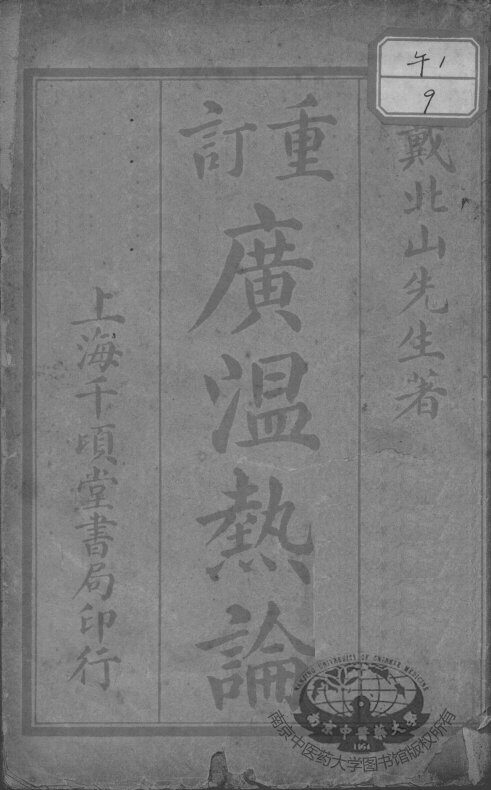 午1
9
戴北山先生著
重訂
廣温熱論
上海千頃堂書局印行
NANJING UNIVERSITY OF CHINESE MEDICINE
南京中醫藥大學
1954
南京中医药大学图书馆版权所有